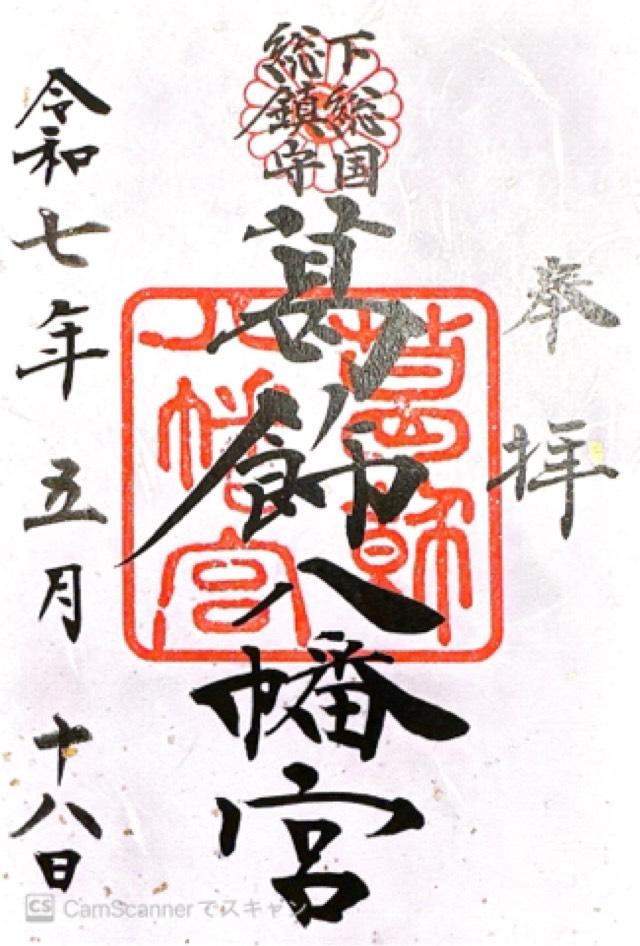 奉拝
下総国
総鎮守
葛飾八幡宮
葛飾
八幡宮
令和七年五月十八日
CS CamScannerでスキャン